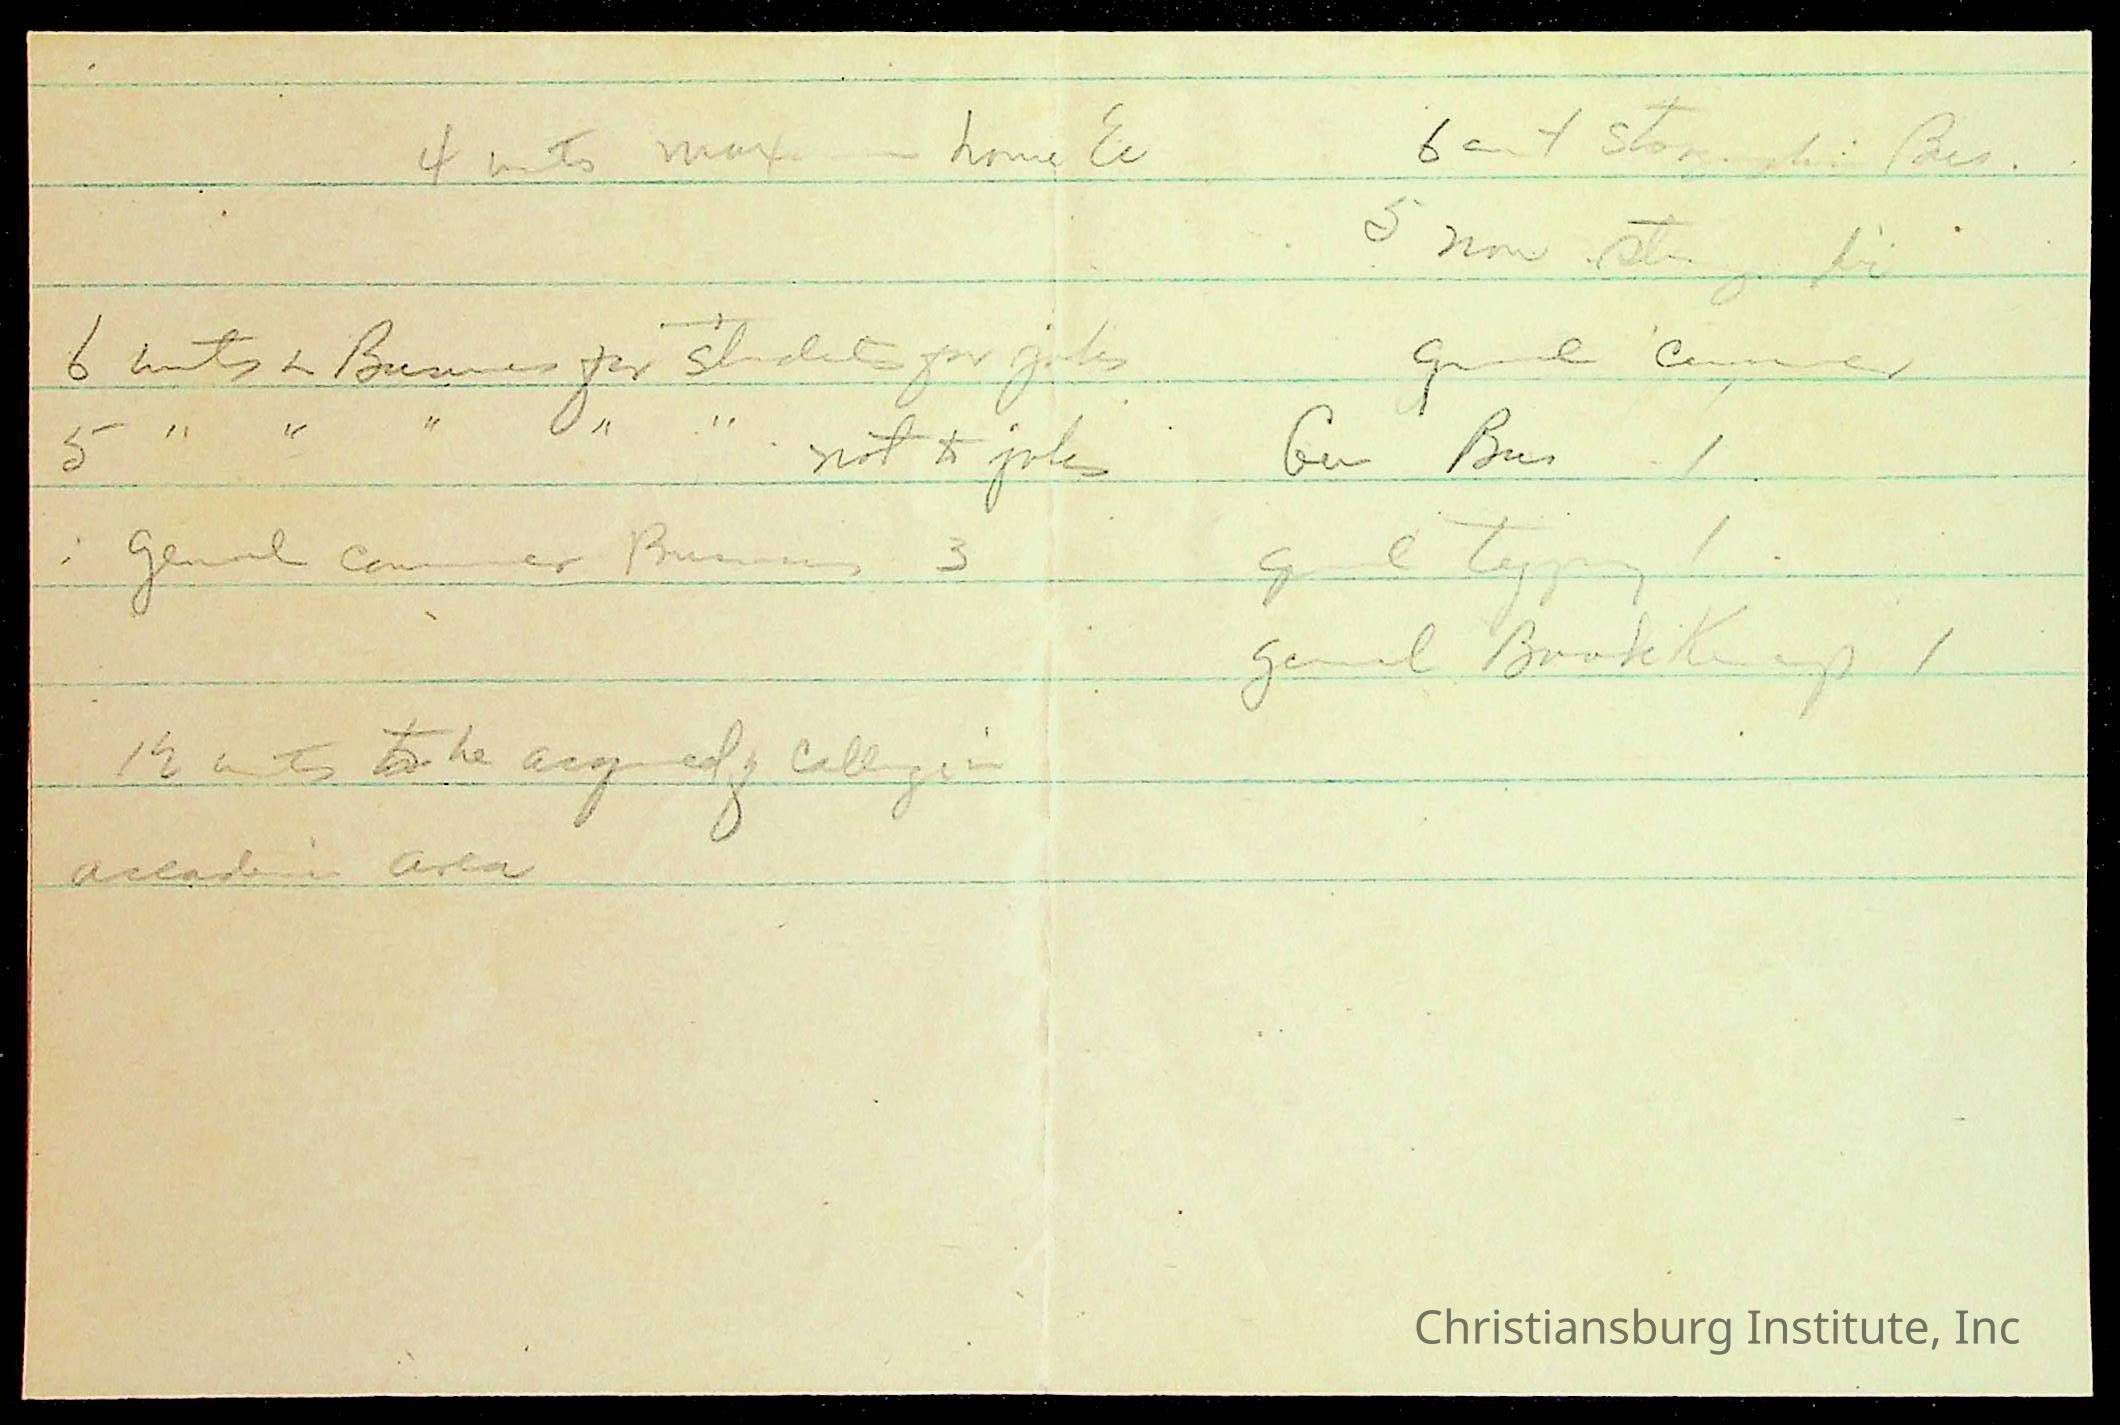 4 units max home Ec
6 units in Business for students for jobs
5 " " " " " not to jobs
General commer Business 3
units to be by college in
academic area
6 Bus.
5 non
general commer
Gen Bus 1
general typing 1
general BookKeeping 1
Christiansburg Institute, Inc